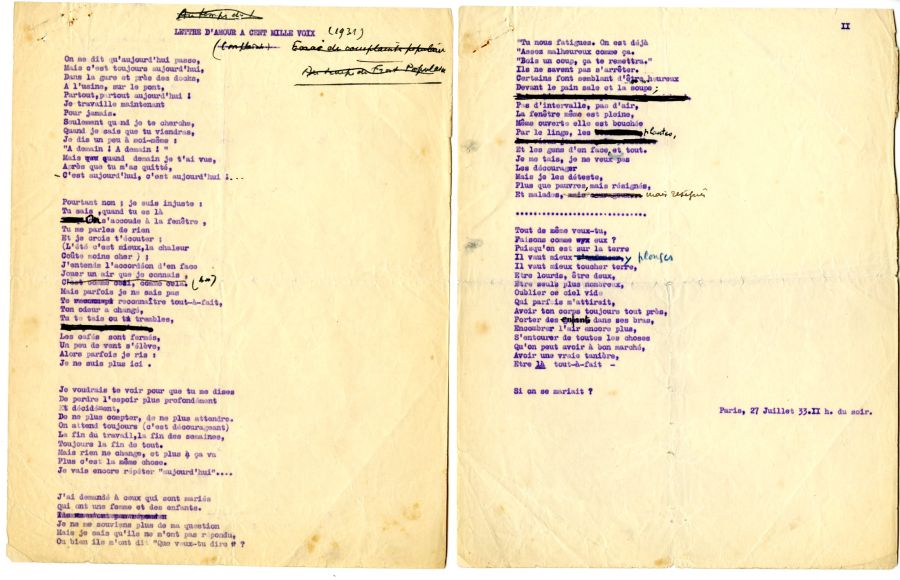 Au temps du
LETTRE D'AMOUR A CENT MILLE VOIX (1931)
(Complainte) Essai de complainte populaire
Au temps du Front Populaire
On me dit qu'aujourd'hui passe,
Mais c'est toujours aujourd'hui,
Dans la gare et près des docks,
A l'usine, sur le pont,
Partout,partout aujourd'hui !
Je travaille maintenant
Pour jamais.
Seulement quand je te cherche,
Quand je sais que tu viendras,
Je dis un peu à moi-même :
"A demain ! A demain ! "
Mais quand demain je t'ai vue,
Après que tu m'as quitté,
- C'est aujourd'hui, c'est aujourd'hui !...
Pourtant non ; je suis injuste :
Tu sais ,quand tu es là
On s'accoude à la fenêtre ,
Tu me parles de rien
Et je crois t'écouter :
(L'été c'est mieux,la chaleur
Coûte moins cher ) ;
J'entends l'accordéon d'en face
Jouer un air que je connais ,
C'est comme ceci, comme cela. (bis)
Mais parfois je ne sais pas
Te reconnaître tout-à-fait,
Ton odeur a changé,
Tu te tais ou tu trembles,
Les cafés sont fermés,
Un peu de vent s'élève,
Alors parfois je ris :
Je ne suis plus ici .
Je voudrais te voir pour que tu me dises
De perdre l'espoir plus profondément
Et décidément,
De ne plus compter, de ne plus attendre.
On attend toujours (c'est décourageant)
La fin du travail,la fin des semaines,
Toujours la fin de tout.
Mais rien ne change, et plus ça va
Plus c'est la même chose.
Je vais encore répéter "aujourd'hui"....
J'ai demandé à ceux qui sont mariés
Qui ont une femme et des enfants.
Je ne me souviens plus de ma question
Mais je sais qu'ils ne m'ont pas répondu,
Ou bien ils m'ont dit "Que veux-tu dire " ?
II
"Tu nous fatigues. On est déjà
"Assez malheureux comme ça.
"Bois un coup, ça te remettra."
Ils ne savent pas s'arrêter.
Certains font semblant d'être heureux
Devant le pain sale et la soupe;
Pas d'intervalle, pas d'air,
La fenêtre même est pleine,
Même ouverte elle est bouchée
Par le linge, les plantes,
Et les gens d'en face,et tout.
Je me tais, je ne veux pas
Les décourager
Mais je les déteste,
Plus que pauvres,mais résignés,
Et malades, mais résignés
Tout de même veux-tu,
Faisons comme eux ?
Puisqu'on est sur la terre
Il vaut mieux y plonger
Il vaut mieux toucher terre,
Etre lourds, être deux,
Etre seuls plus nombreux,
Oublier ce ciel vide
Qui parfois m'attirait,
Avoir ton corps toujours tout près,
Porter des enfants dans ses bras,
Encombrer l'air encore plus,
S'entourer de toutes les choses
Qu'on peut avoir à bon marché,
Avoir une vraie tanière,
Etre là tout-à-fait -
Si on se mariait ?
Paris, 27 Juillet 33.II h. du soir.